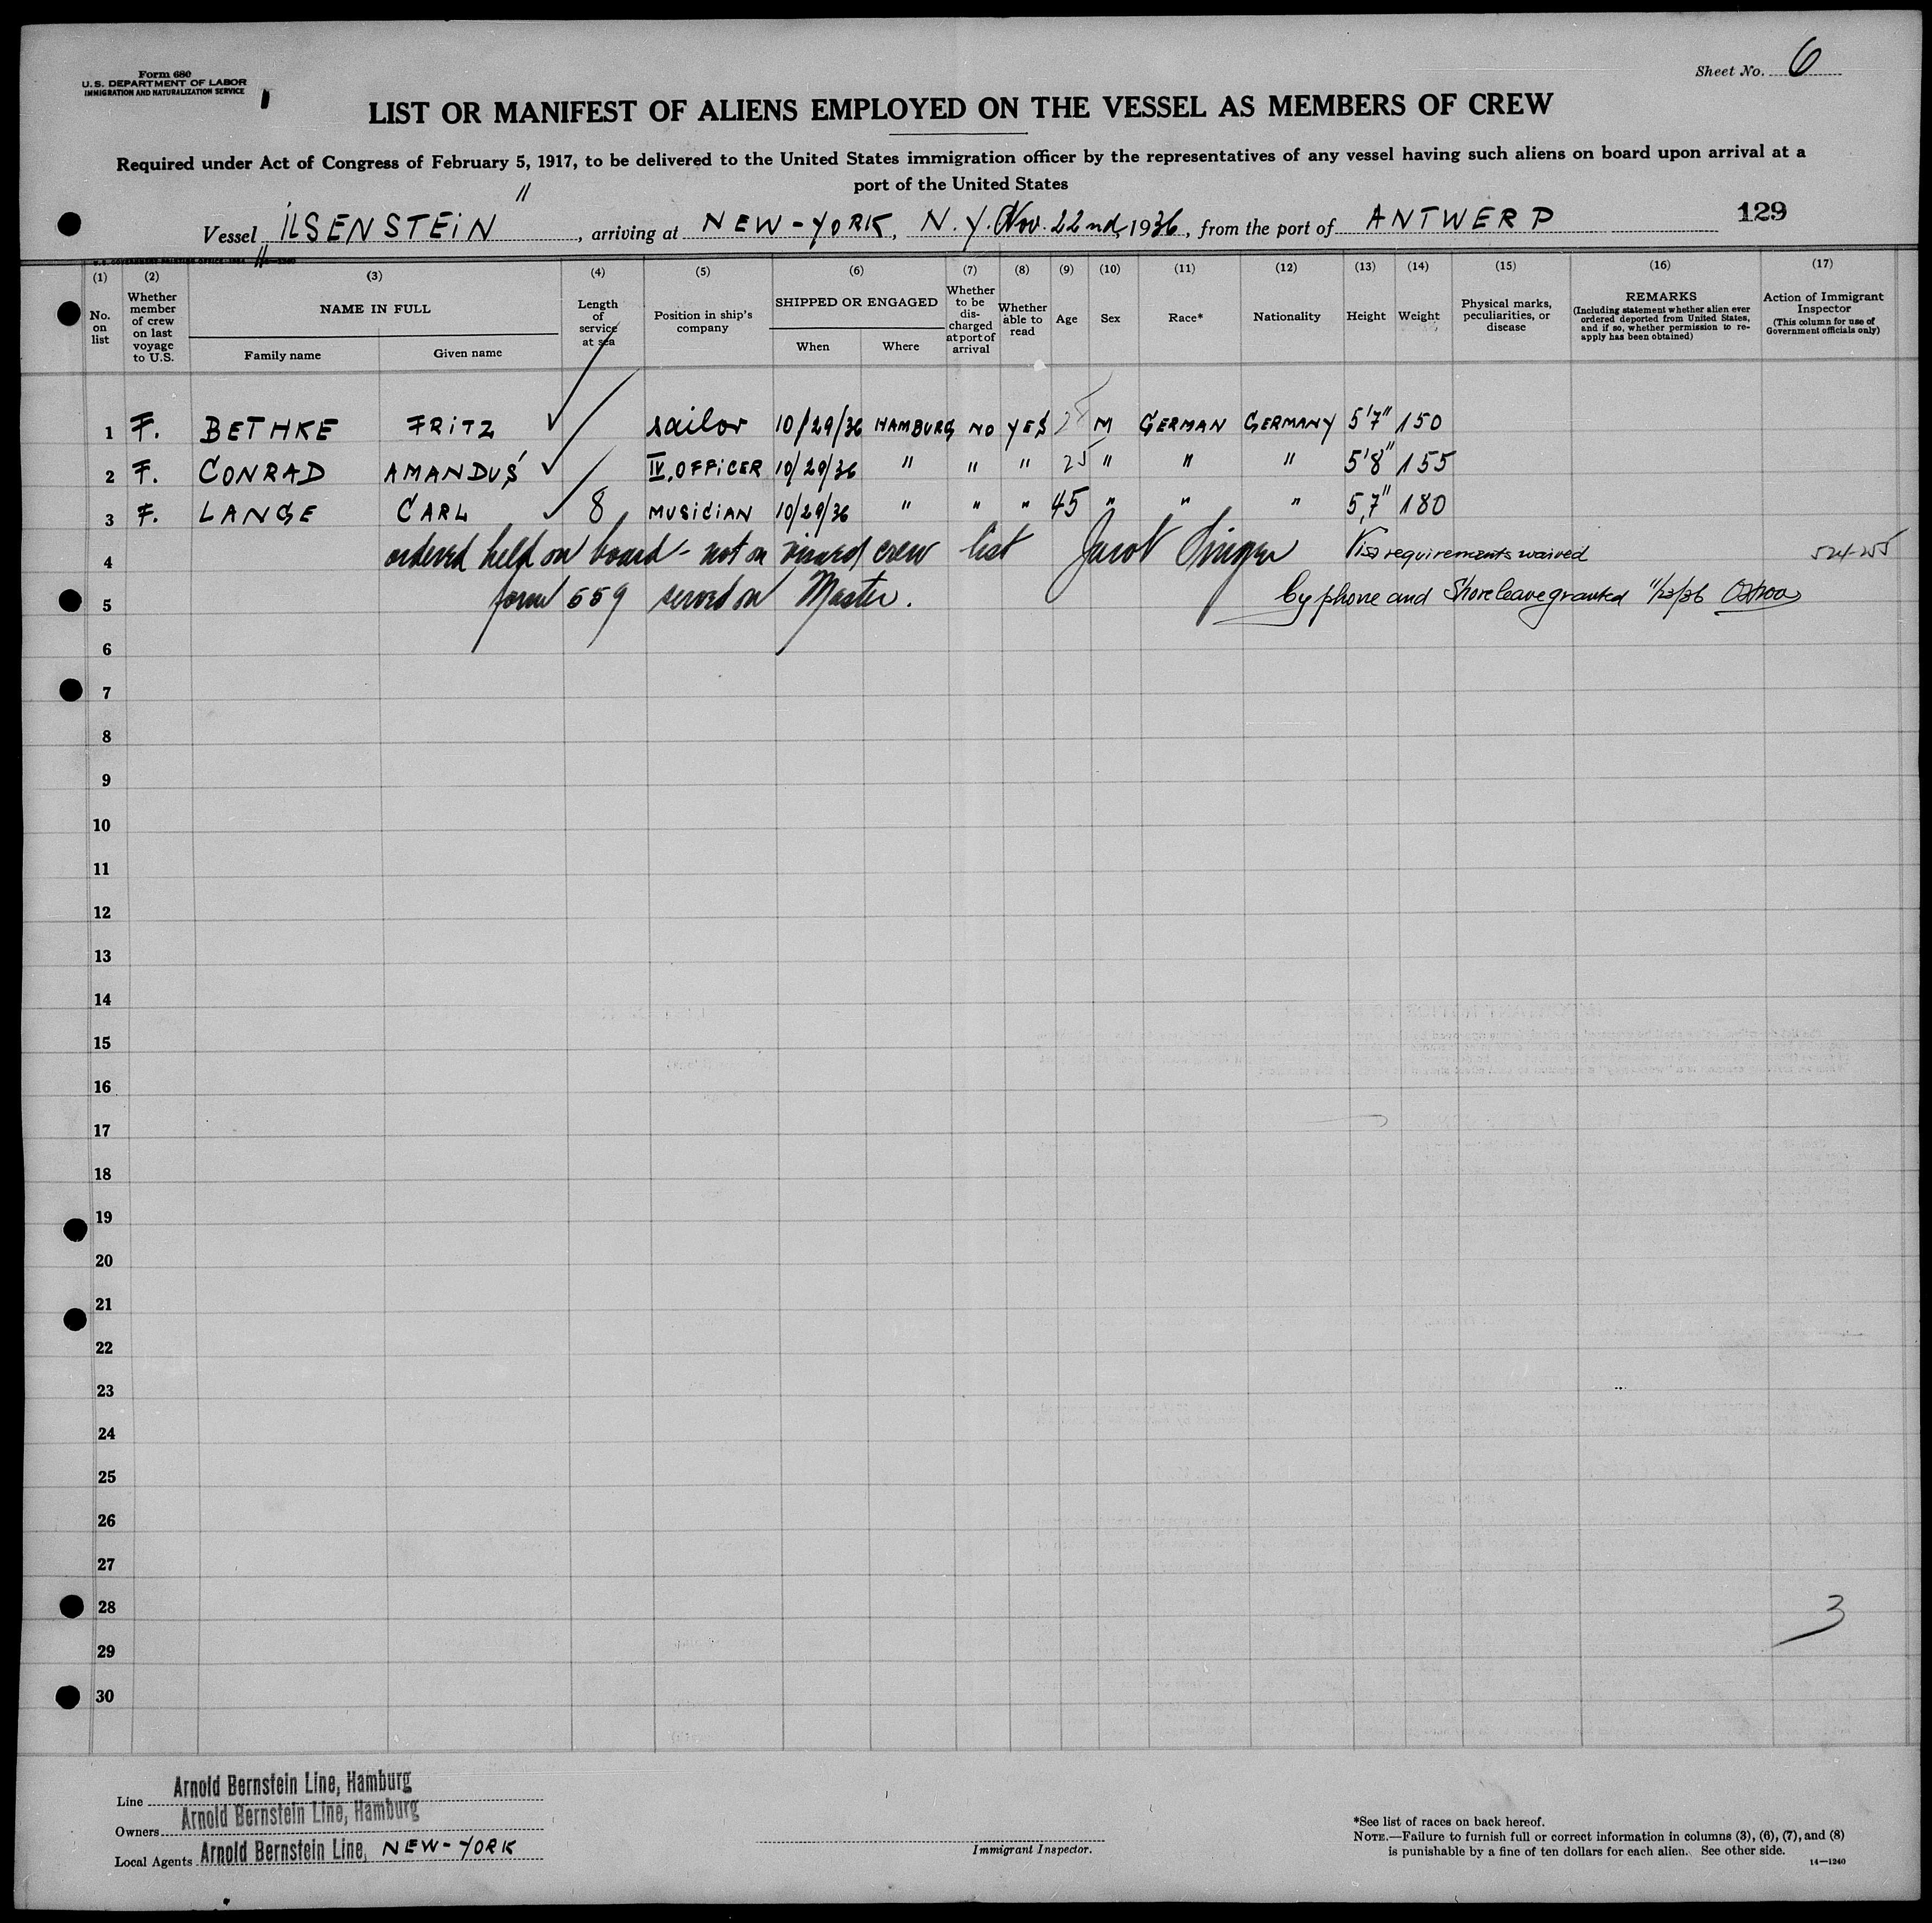 Form 680
U. S. DEPARTMENT OF LABOR
IMMIGRATION AND NATURALIZATION SERVICE
Sheet No. 6
LIST OR MANIFEST OF ALIENS EMPLOYED ON THE VESSEL AS MEMBERS OF CREW
Required under Act of Congress of February 5, 1917, to be delivered to the United States immigration officer by the representatives of any vessel having such aliens on board upon arrival at a
port of the United States
Vessel "ILSENSTEIN", arriving at NEW-YORK, N.Y. Nov. 22nd, 1936, from the port of ANTWERP 129
(1) (2) (3) (4) (5) (6) (7) (8) (9) (10) (11) (12) (13) (14) (15) (16) (17)
No. on list
Whether member of crew on last voyage to U.S.
NAME IN FULL
Family name Given name
Length of service at sea
Position in ship's company
SHIPPED OR ENGAGED
When Where
Whether to be discharged at port of arrival
Whether able to read
Age
Sex
Race*
Nationality
Height
Weight
Physical marks, peculiarities, or disease
REMARKS
(Including statement whether alien ever ordered deported from United States, and if so, whether permission to reapply has been obtained)
Action of Immigrant Inspector
(This column for use of Government officials only)
1 F. BETHKE FRITZ sailor 10/29/36 HAMBURG NO YES M GERMAN GERMANY 5'7" 150
2 F. CONRAD AMANDUS IV. OFFICER 10/29/36 " " " 25 " " " 5'8" 155
3 F. LANGE CARL 8 MUSICIAN 10/29/36 " " " 45 " " " 5,7" 180
4 ordered held on board - not on visaed crew list Jacob Singer Visa requirements waived 524-255
5 form 559 served on Master. by phone and Shore leave granted 11/23/36
6
7
8
9
10
11
12
13
14
15
16
17
18
19
20
21
22
23
24
25
26
27
28 3
29
30
Line Arnold Bernstein Line, Hamburg
Owners Arnold Bernstein Line, Hamburg
Local Agents Arnold Bernstein Line, NEW-YORK
Immigrant Inspector.
*See list of races on back hereof.
NOTE.—Failure to furnish full or correct information in columns (3), (6), (7), and (8)
is punishable by a fine of ten dollars for each alien. See other side.
14—1240